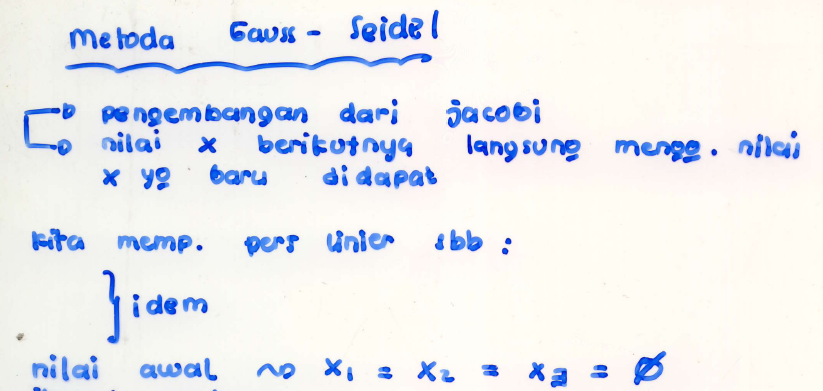 Metoda Gauss - Seidel
pengembangan dari jacobi
nilai x berikutnya langsung mengg. nilai
x yg baru didapat
kita memp. pers linier sbb :
} idem
nilai awal ~> x₁ = x₂ = x₃ = Ø